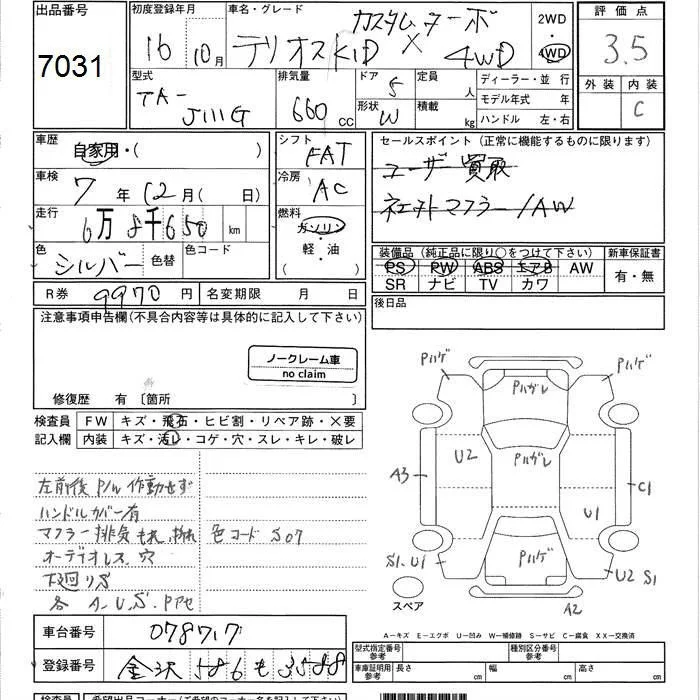 出品番号 7031
初度登録年月 16 10月
車名・グレード カスタムターボ テリオスKID × 4WD
2WD・4WD
評価点 3.5
外装 内装 C
型式 TA- J111G
排気量 660 CC
ドア 5 形状 W
定員 人 積載 kg
ディーラー・並行
モデル年式 年
ハンドル 左・右
車歴 自家用・( )
車検 7年 12月( 日)
走行 6万8千650 km
色 シルバー 色替 色コード
シフト FAT
冷房 AC
燃料 ガソリン・軽・油 ( )
セールスポイント (正常に機能するものに限ります)
ユーザー買取
マフラー/AW
装備品 (純正品に限り○をつけて下さい)
PS PW ABS エアB AW
SR ナビ TV カワ
新車保証書 有・無
後日品
R券 9970円 名変期限 月 日
注意事項申告欄(不具合内容等は具体的に記入して下さい)
ノークレーム車
no claim
修復歴 有 〔箇所 〕
検査員記入欄
FW キズ・飛石・ヒビ割・リペア跡・×要
内装 キズ・汚レ・コゲ・穴・スレ・キレ・破レ
左前後 P/W 作動せず
ハンドルカバー有
マフラー排気もれ 色コード S07
オーディオレス、穴
下廻りS
各 A.U.S.Pアセ
Pハゲ Pハガレ Pハゲ
U2 Pハガレ
A3 C1
U1
S1.U1 Pハゲ U2 S1
スペア A2
A-キズ E-エクボ U-凹み W-補修跡 S-サビ C-腐食 XX-交換済
車台番号 078717
登録番号 金沢 586 も 3588
型式指定番号 参考 種別区分番号 参考
車庫証明用 参考 長さ 幅 高さ